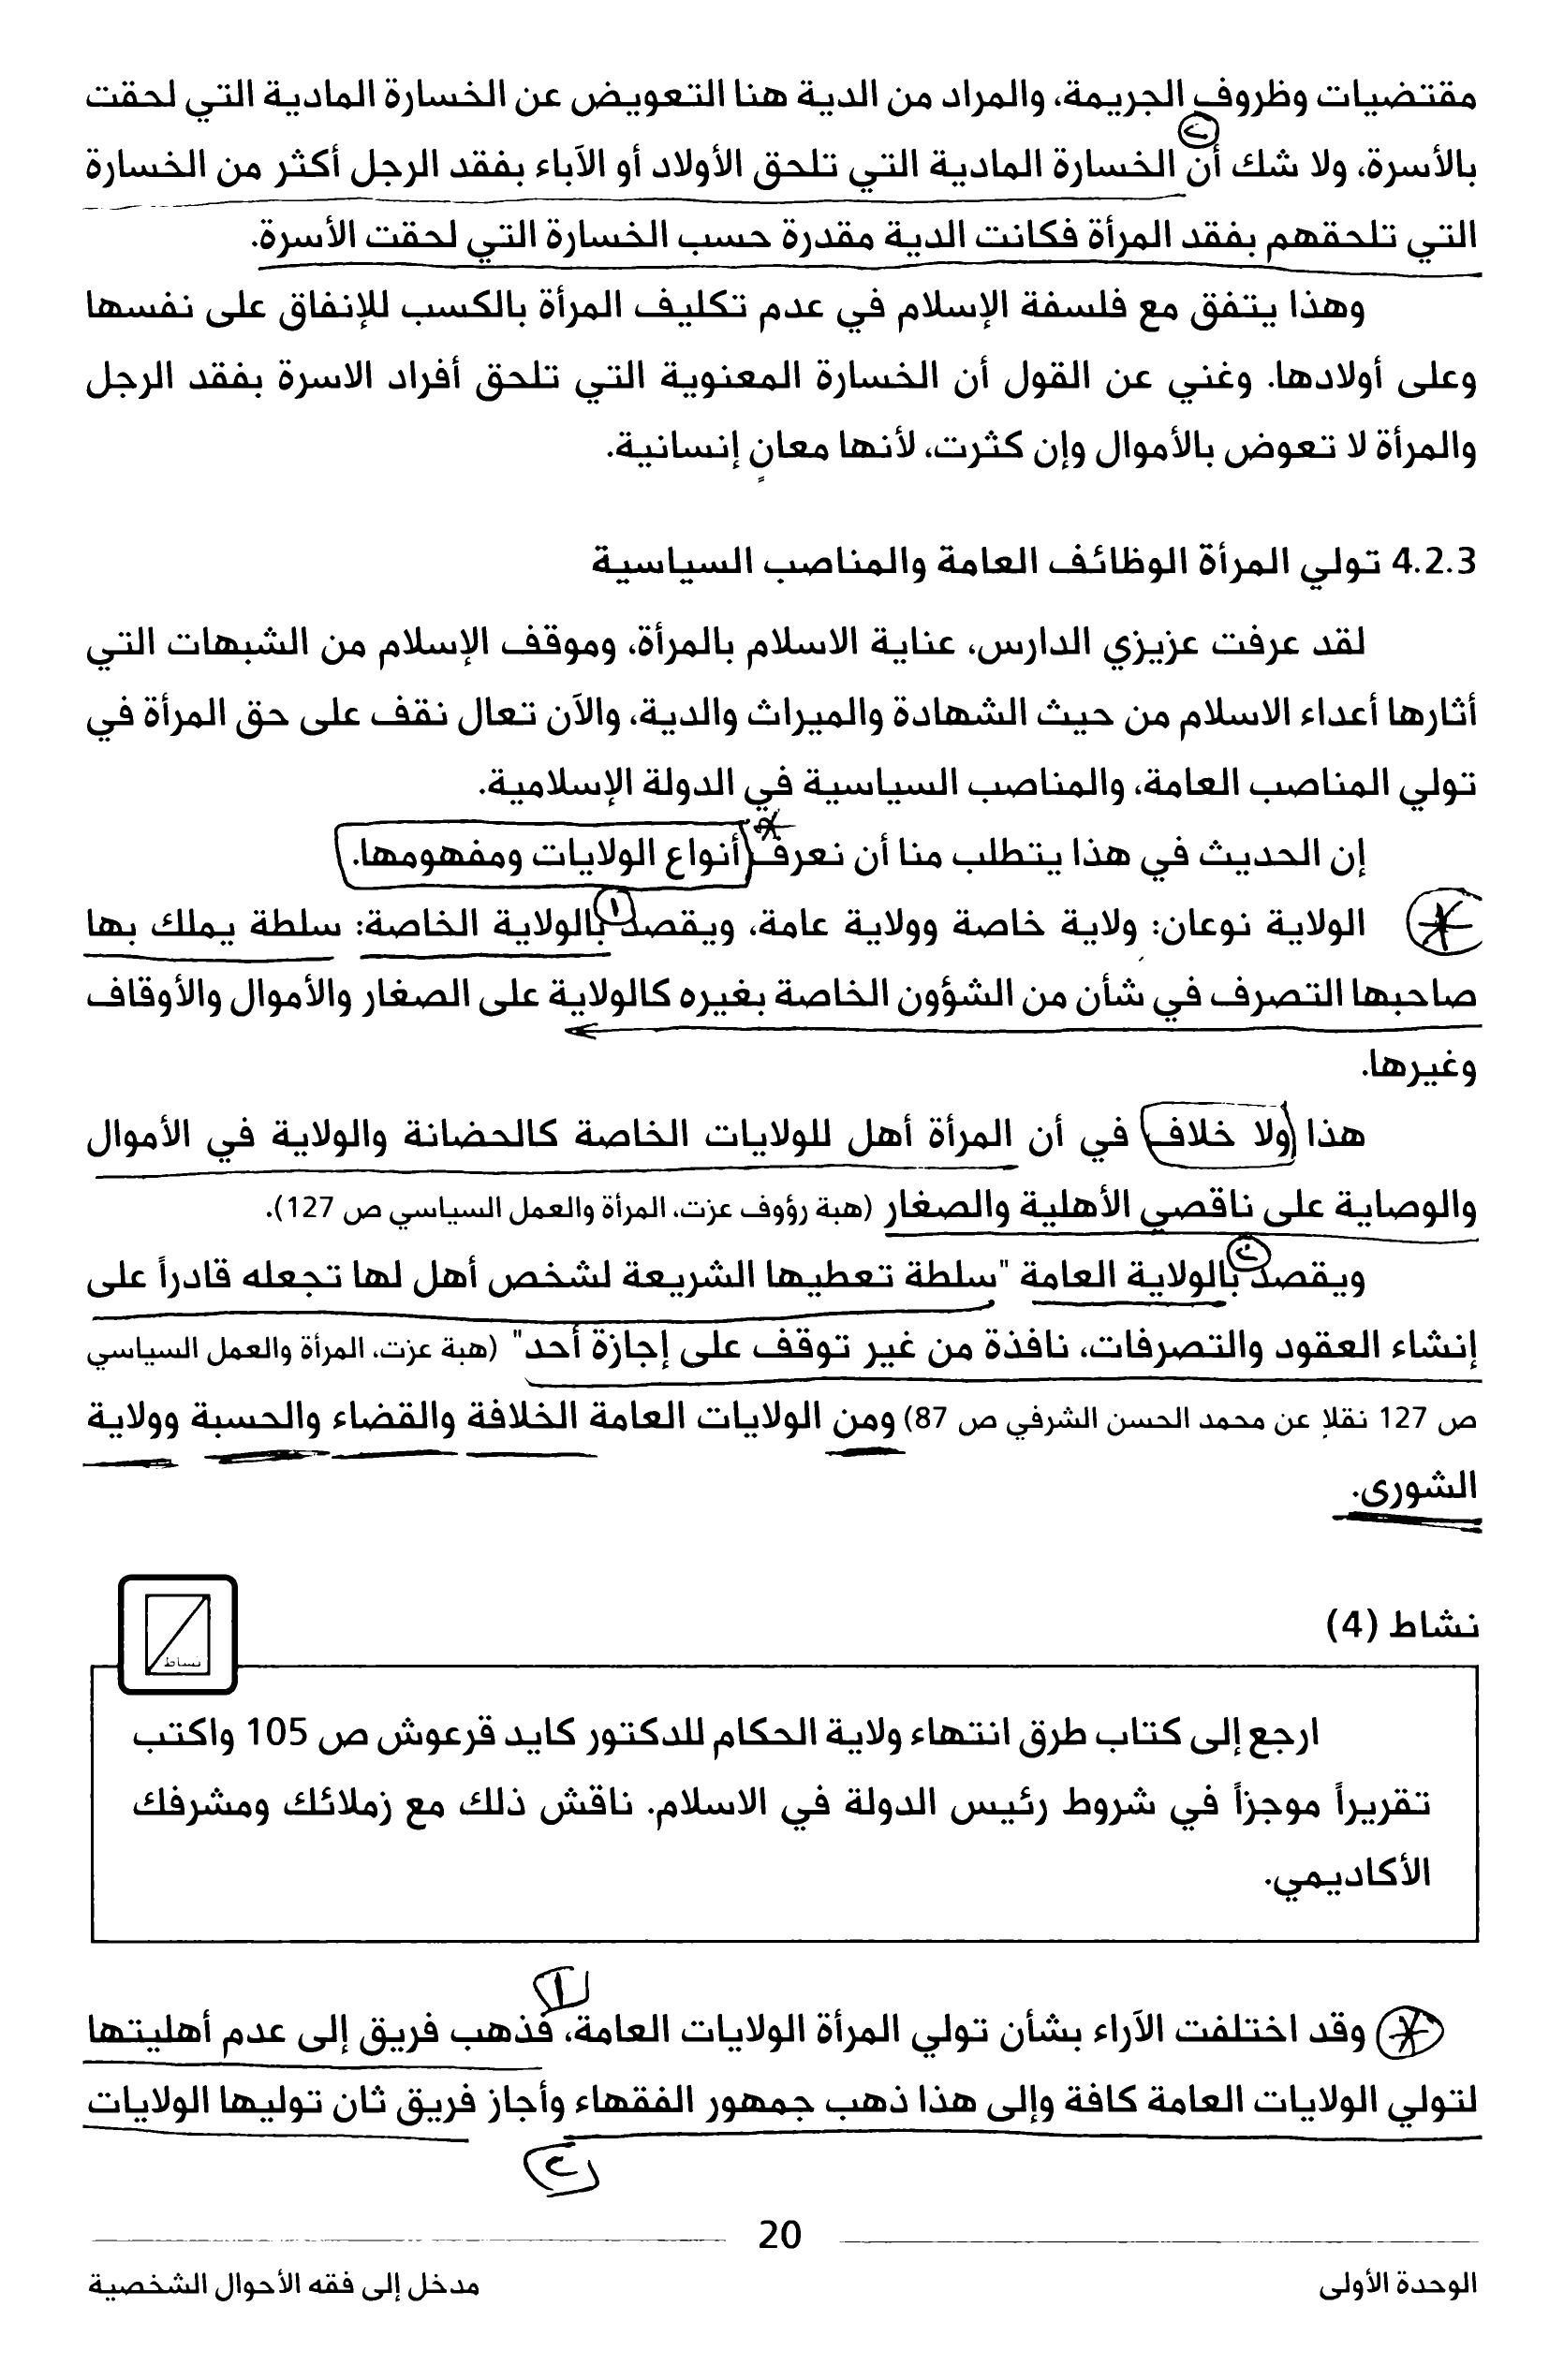 مقتضيات وظروف الجريمة، والمراد من الدية هنا التعويض عن الخسارة المادية التي لحقت
بالأسرة، ولا شك أن الخسارة المادية التي تلحق الأولاد أو الآباء بفقد الرجل أكثر من الخسارة
التي تلحقهم بفقد المرأة فكانت الدية مقدرة حسب الخسارة التي لحقت الأسرة.
وهذا يتفق مع فلسفة الإسلام في عدم تكليف المرأة بالكسب للإنفاق على نفسها
وعلى أولادها. وغني عن القول أن الخسارة المعنوية التي تلحق أفراد الاسرة بفقد الرجل
والمرأة لا تعوض بالأموال وإن كثرت، لأنها معانٍ إنسانية.
4.2.3 تولي المرأة الوظائف العامة والمناصب السياسية
لقد عرفت عزيزي الدارس، عناية الاسلام بالمرأة، وموقف الإسلام من الشبهات التي
أثارها أعداء الاسلام من حيث الشهادة والميراث والدية، والآن تعال نقف على حق المرأة في
تولي المناصب العامة، والمناصب السياسية في الدولة الإسلامية.
إن الحديث في هذا يتطلب منا أن نعرف أنواع الولايات ومفهومها.
الولاية نوعان: ولاية خاصة وولاية عامة، ويقصد بالولاية الخاصة: سلطة يملك بها
صاحبها التصرف في شأن من الشؤون الخاصة بغيره كالولاية على الصغار والأموال والأوقاف
وغيرها.
هذا ولا خلاف في أن المرأة أهل للولايات الخاصة كالحضانة والولاية في الأموال
والوصاية على ناقصي الأهلية والصغار (هبة رؤوف عزت، المرأة والعمل السياسي ص 127).
ويقصد بالولاية العامة "سلطة تعطيها الشريعة لشخص أهل لها تجعله قادراً على
إنشاء العقود والتصرفات، نافذة من غير توقف على إجازة أحد" (هبة عزت، المرأة والعمل السياسي
ص 127 نقلا عن محمد الحسن الشرفي ص 87) ومن الولايات العامة الخلافة والقضاء والحسبة وولاية
الشورى.
نشاط (4)
نشاط
ارجع إلى كتاب طرق انتهاء ولاية الحكام للدكتور كايد قرعوش ص 105 واكتب
تقريراً موجزاً في شروط رئيس الدولة في الاسلام. ناقش ذلك مع زملائك ومشرفك
الأكاديمي.
وقد اختلفت الآراء بشأن تولي المرأة الولايات العامة، فذهب فريق إلى عدم أهليتها
لتولي الولايات العامة كافة وإلى هذا ذهب جمهور الفقهاء وأجاز فريق ثان توليها الولايات
20
الوحدة الأولى
مدخل إلى فقه الأحوال الشخصية